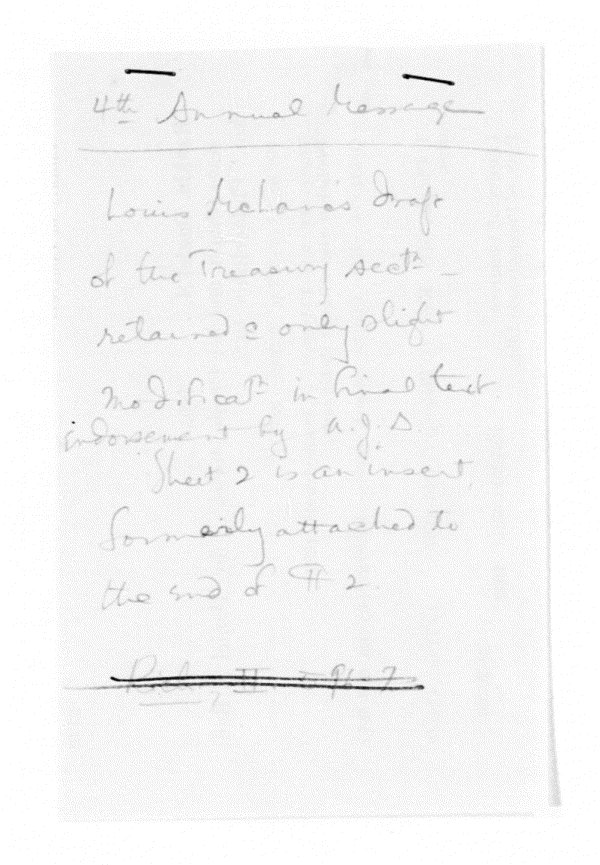 4th Annual Message
Louis McLane's draft
of the Treasury sectn —
retained c only slight
modificatn in final text
indorsement by A.J.D
Sheet 2 is an insert
formerly attached to
the end of ¶ 2
II